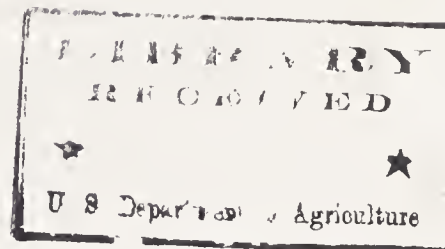 LIBRARY
RECEIVED
★ ★
U S Department of Agriculture